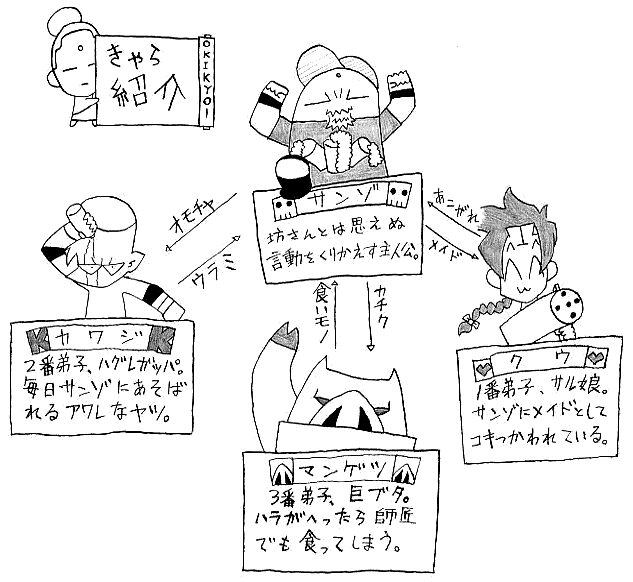 きゃら
紹介
OKIKYO!
サンゾ
坊さんとは思えぬ
言動をくりかえす主人公。
オモチャ
ウラミ
あこがれ
メイド
食いモノ
カチク
カワジ
2番弟子、ハグレガッパ。
毎日サンゾにあそば
れるアワレなヤツ。
クウ
1番弟子、サル娘。
サンゾにメイドとして
コキつかわれている。
マンゲツ
3番弟子、巨ブタ。
ハラがへったら師匠
でも食ってしまう。